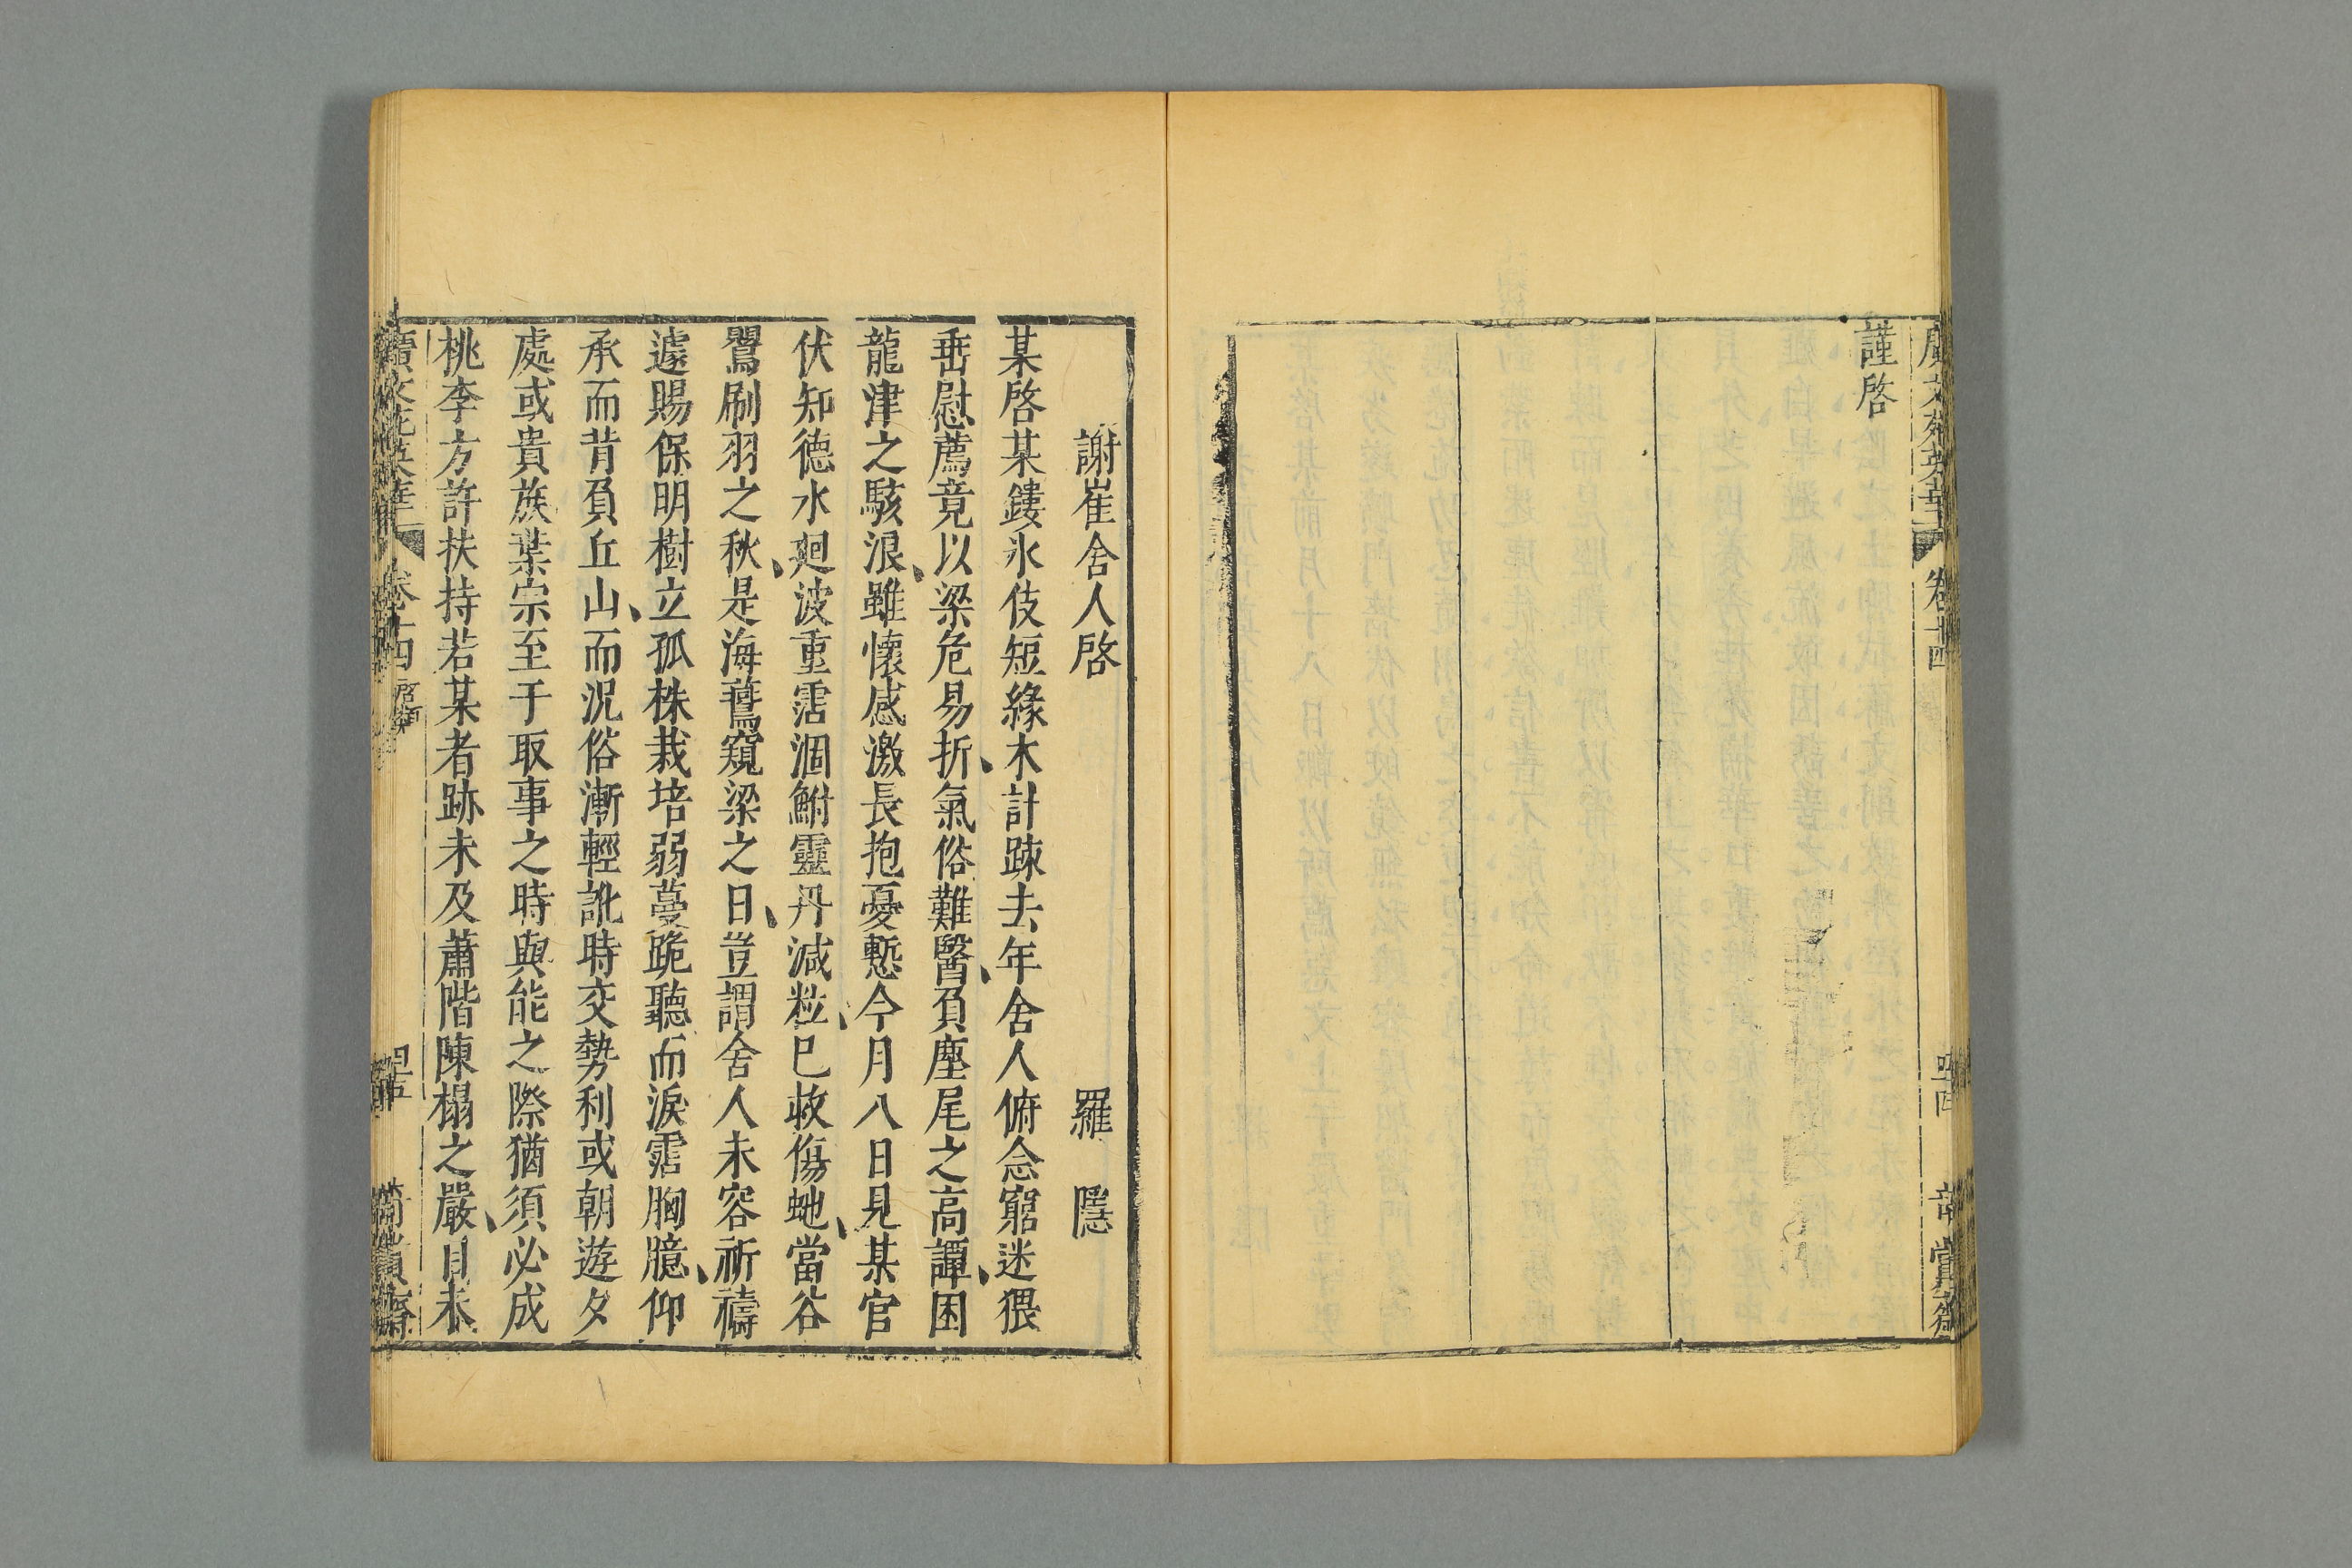 廣文苑英華 卷十四
謹啓
謝崔舍人啓 羅 隱
某啓某鏤氷伎短緣木計踈去年舍人俯念窮迷猥
垂慰薦竟以梁危易折氣俗難醫負塵尾之高譚困
龍津之駭浪雖懷感激長抱憂慙今月八日見某官
伏知德水廻波重霑涸鮒靈丹減粒已救傷虵當谷
鸎刷羽之秋是海鷰窺梁之日豈謂舍人未容祈禱
遽賜保明樹立孤株栽培弱蔓跪聽而淚霑胸臆仰
承而背負丘山而況俗漸輕訛時交勢利或朝遊夕
處或貴族葉宗至于取事之時與能之際猶須必成
桃李方許扶持若某者跡未及蕭階陳榻之嚴目未
廣文苑英華 卷十四 啓類